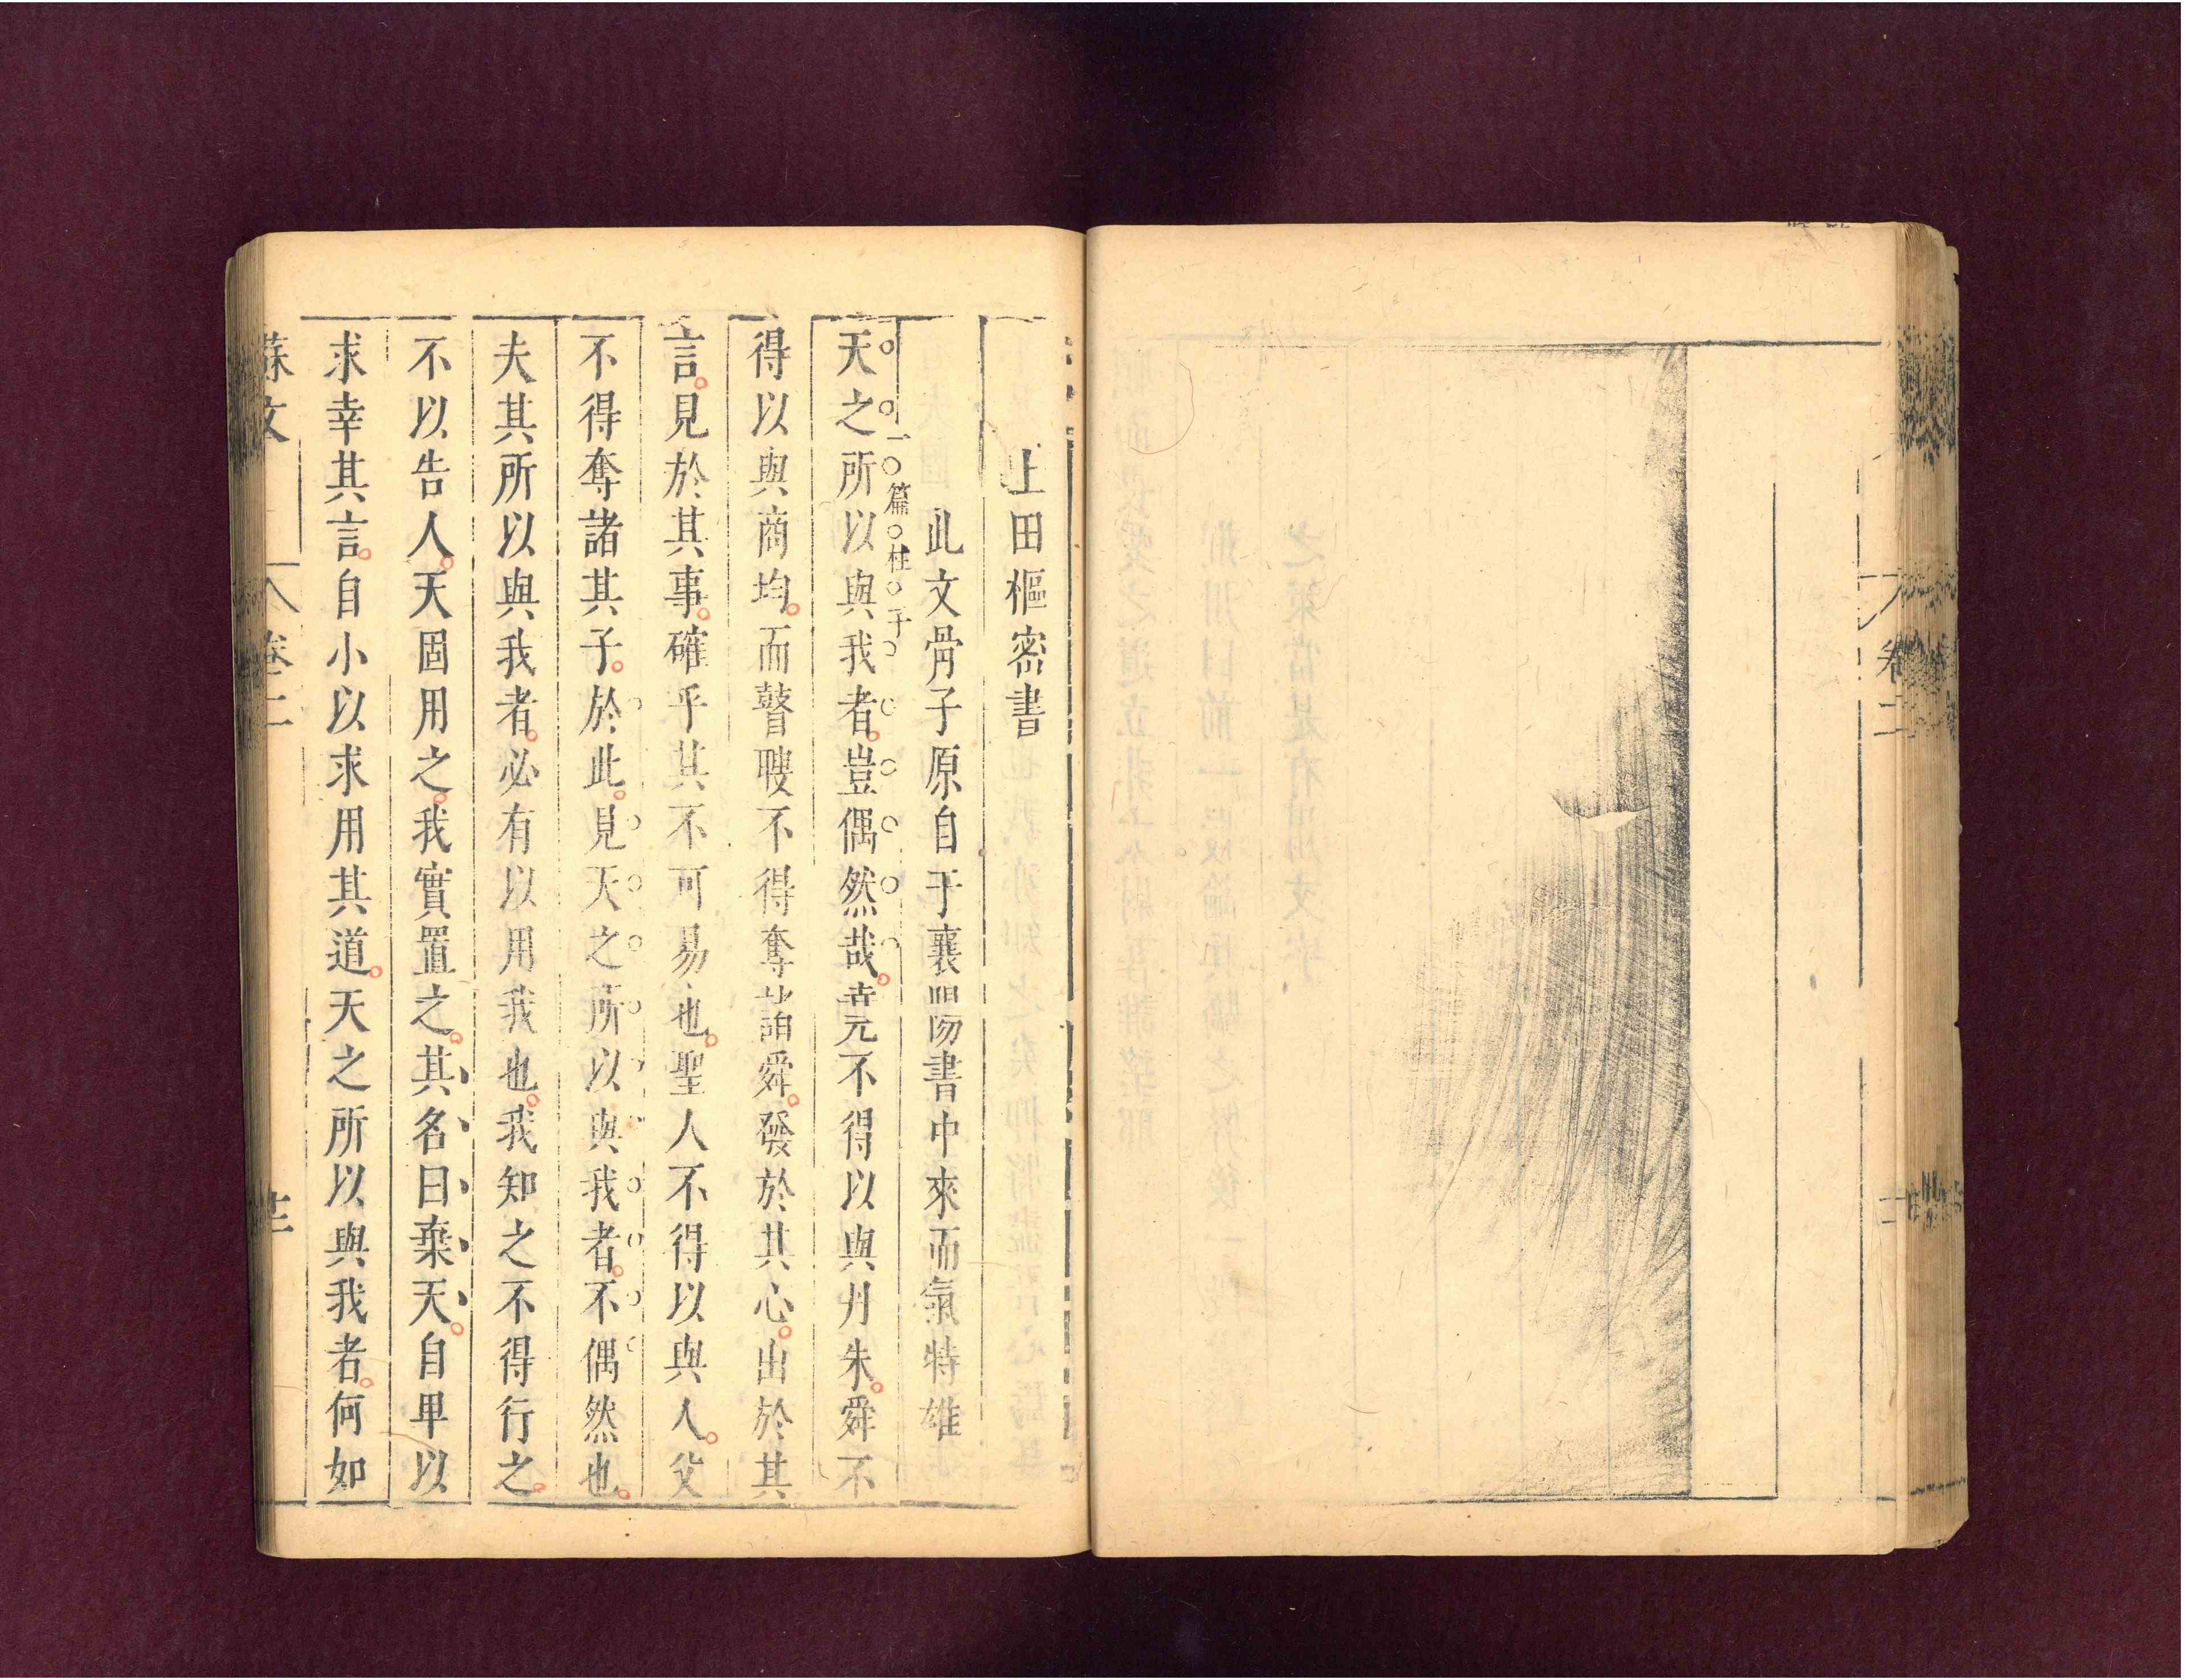 卷二
上田樞密書
此文骨子原自于襄陽書中來而氣特雄
一篇柱子
天之所以與我者豈偶然哉堯不得以與丹朱舜不
得以與商均而瞽瞍不得奪諸舜發於其心出於其
言見於其事確乎其不可易也聖人不得以與人父
不得奪諸其子於此見天之所以與我者不偶然也
夫其所以與我者必有以用我也我知之不得行之
不以告人天固用之我實置之其名曰棄天自卑以
求幸其言自小以求用其道天之所以與我者何如
蘇文 卷二